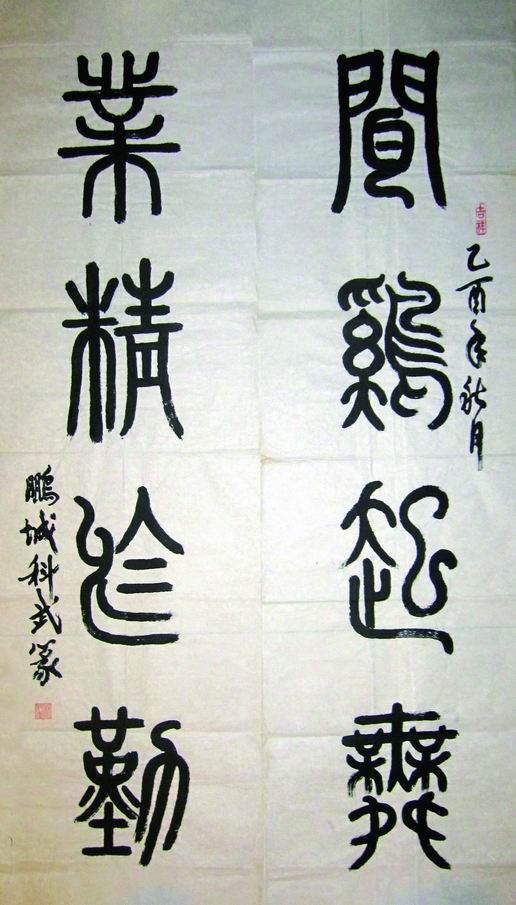 吉祥
乙酉年秋月
聞鷄起舞
業精於勤
鵬城科武篆